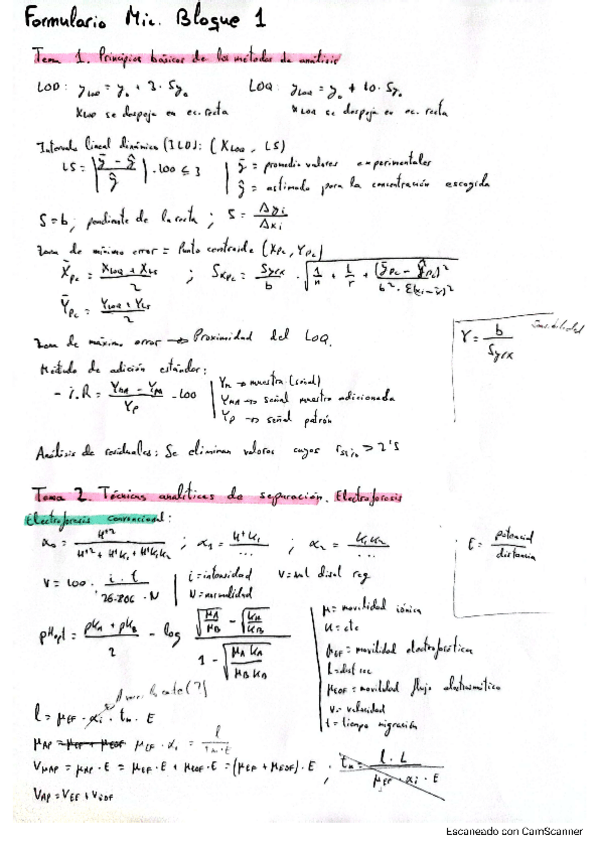 Formulario Mic. Bloque 1
Tema 1. Principios básicos de los métodos de análisis
LOD: y_LOD = y₀ + 3·Sy₀   LOQ: y_LOQ = y₀ + 10·Sy₀
x_LOD se despeja en ec. recta   x_LOQ se despeja en ec. recta
Intervalo lineal dinámico (ILD): (X_LOQ, LS)
LS = |(ȳ - ŷ)/ŷ| · 100 ≤ 3   ȳ = promedio valores experimentales
ŷ = estimado para la concentración escogida
S = b; pendiente de la recta; S = Δyi/Δxi
Zona de mínimo error = Punto centroide (X_PC, Y_PC)
X̄_PC = (X_LOQ + X_LS)/2 ; S_XPC = (Sy/x)/b · √(1/n + 1/r + (ȳ_PC - ŷ_PC)²/(b²·Σ(xi - x̄)²))
Ȳ_PC = (Y_LOQ + Y_LS)/2
Zona de máximo error → Proximidad del LOQ.
γ = b/(Sy/x)
Método de adición estándar:
- %R = (Y_MA - Y_M)/Y_P · 100   Y_M → muestra (señal)
Y_MA → señal muestra adicionada
Y_P → señal patrón
Análisis de residuales: Se eliminan valores cuyos > 2'5
Tema 2. Técnicas analíticas de separación. Electroforesis
Electroforesis convencional:
α₀ = H⁺²/(H⁺² + H⁺K₁ + K₁K₂) ; α₁ = H⁺K₁/... ; α₂ = K₁K₂/...
E = potencial/distancia
V = 100 · i·t/(26·806·N)   i = intensidad   V = vol disol reg
N = normalidad
pH_opt = (pK_A + pK_B)/2 - log (√(μ_A/μ_B) - √(K_A/K_B))/(1 - √(μ_A K_A/μ_B K_B))
μ = movilidad iónica
K = cte
μ_EF = movilidad electroforética
l = dist rec
μ_EOF = movilidad flujo electroosmótico
v = velocidad
t = tiempo migración
l = μ_EF · αi · t_m · E
μ_AP = μ_EF + μ_EOF μ_EF · αi = l/(t_m·E)
V_MAP = μ_AP · E = μ_EF · E + μ_EOF · E = (μ_EF + μ_EOF) · E ; t_m = l·L/(μ_EF · αi · E)
V_AP = V_EF + V_EOF
Escaneado con CamScanner